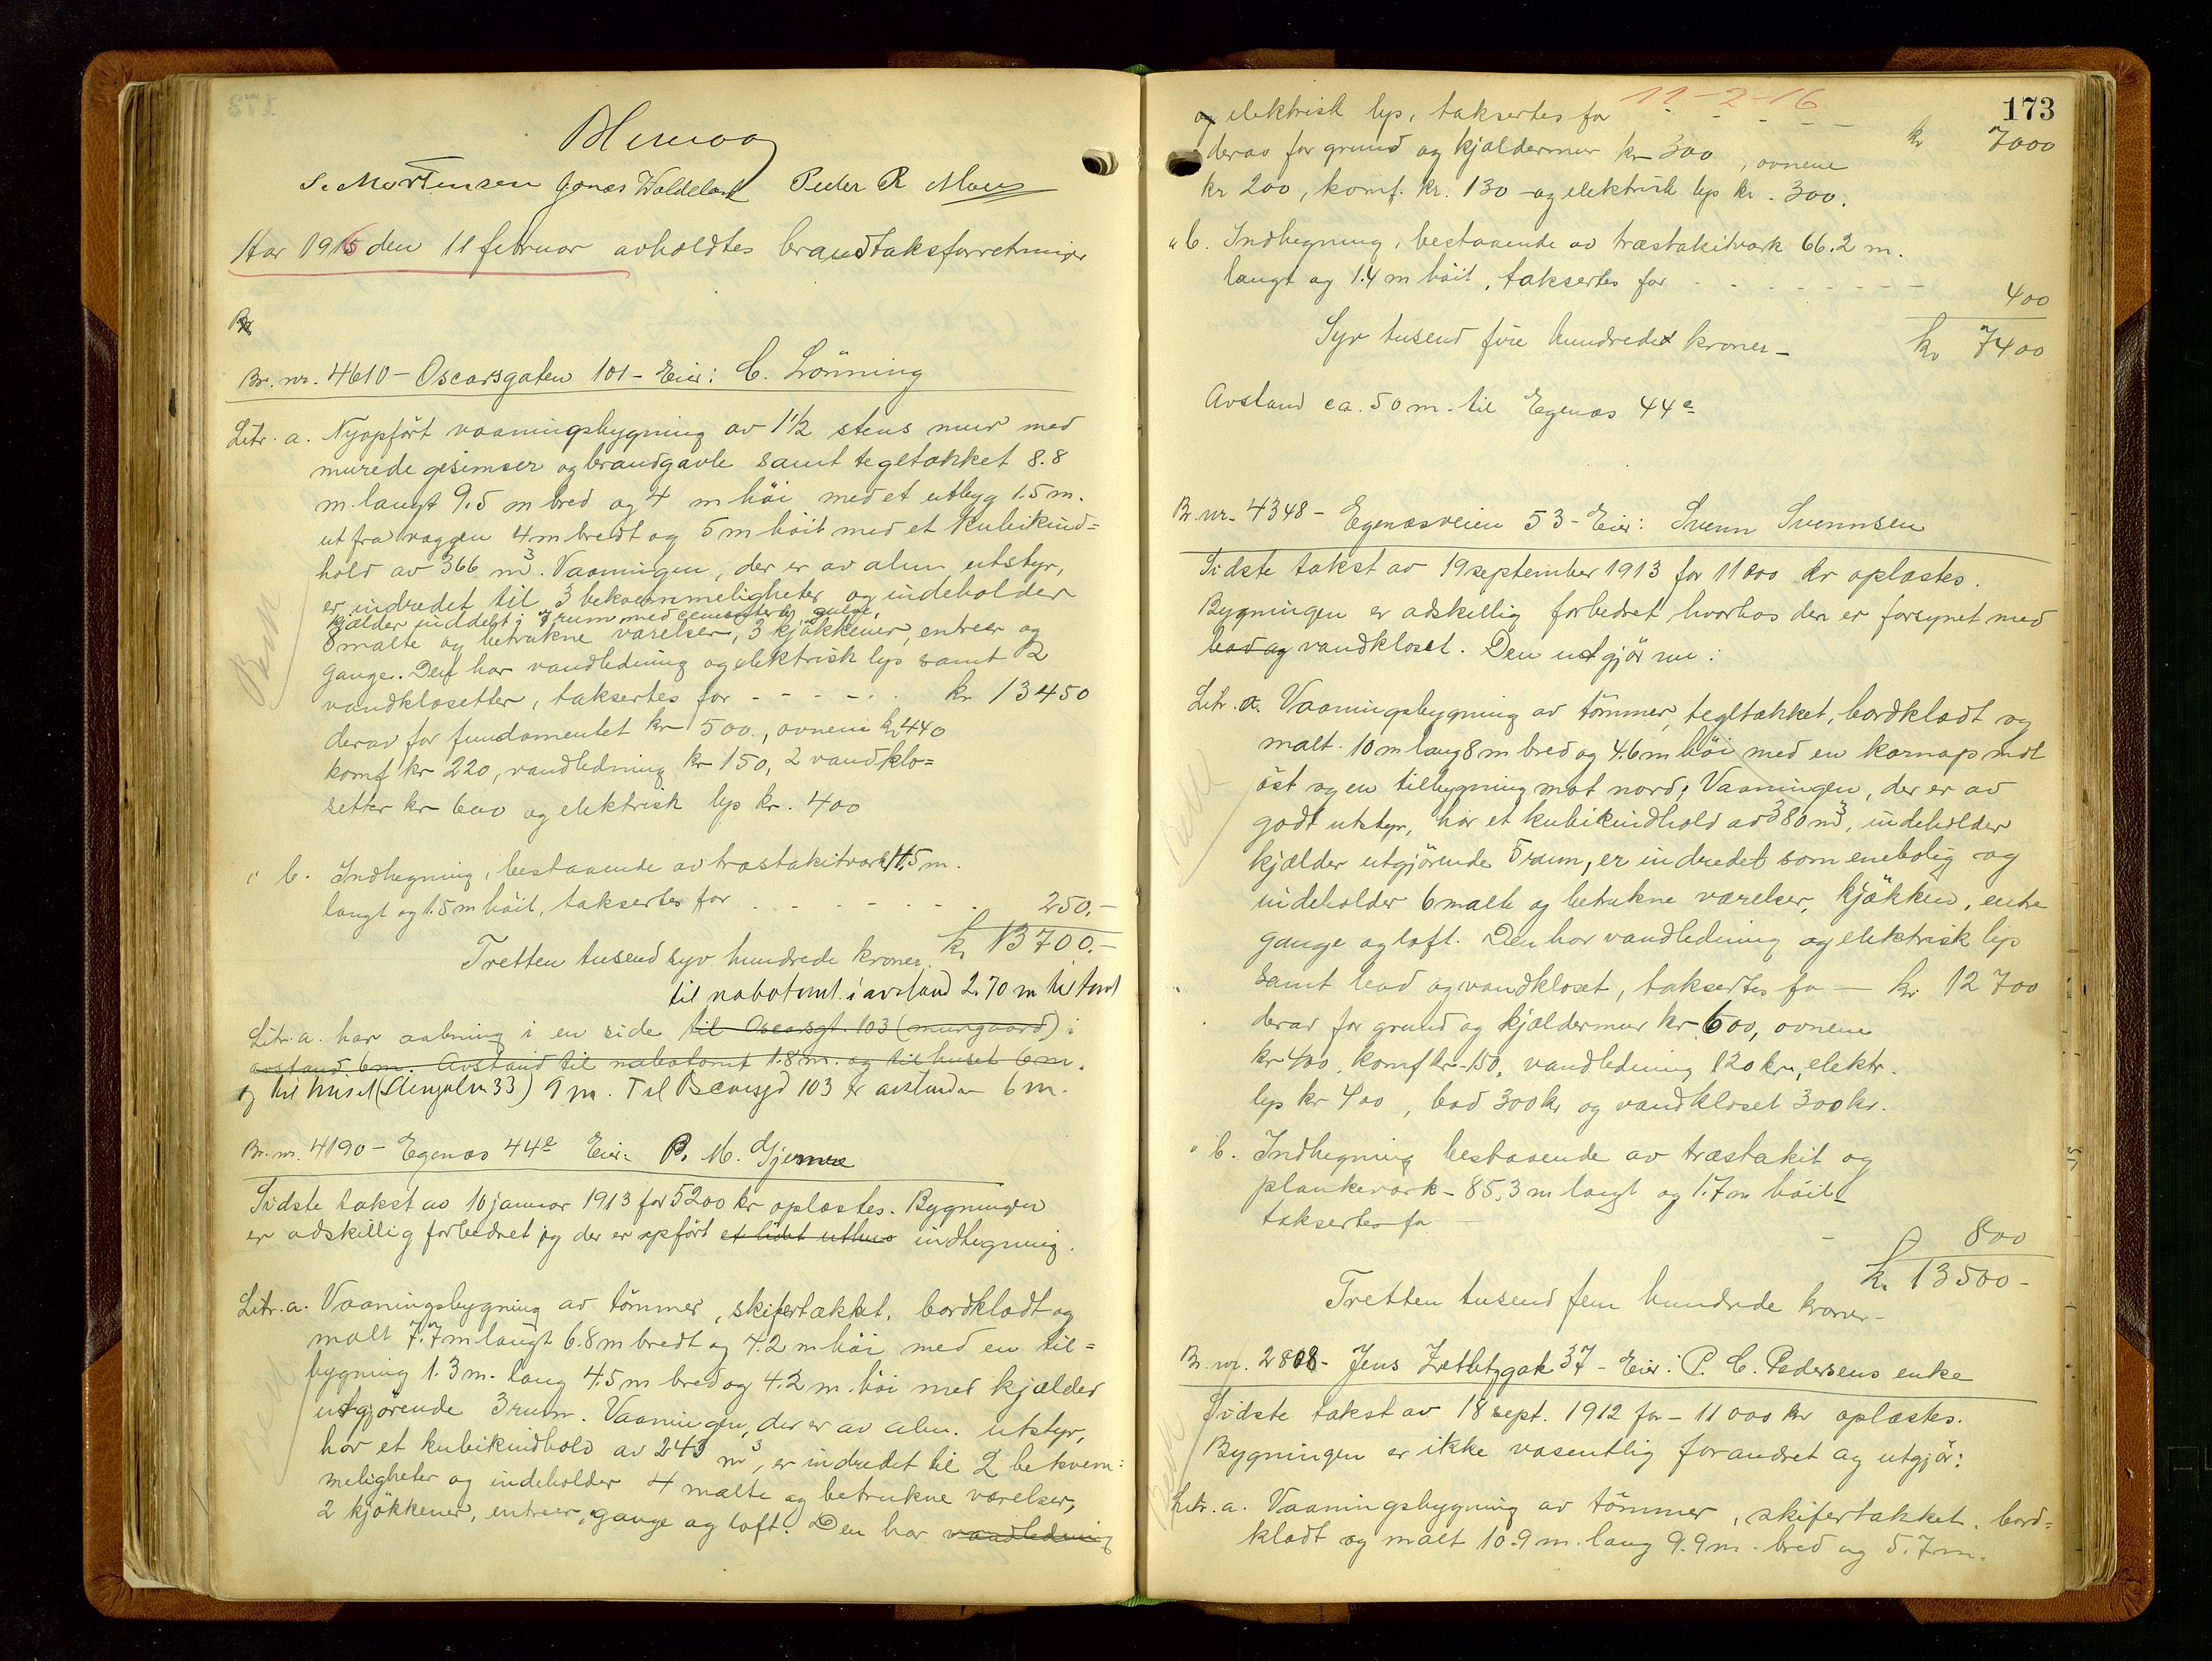 S. Mortensen Jonas Waldeland Peder R Moen
Aar 1916 den 11 februar avholdtes brandtaksforretninger
Br. nr. 4610 - Oscarsgaten 101 - Eier: C. Lönning
Litr. a. Nyopfört vaaningsbygning av 1 1/2 stens mur med
murede gesimser og brandgavle samt tegltækket 8.8
m. langt 9.5 m bred og 4 m höi med et utbyg 1.5 m.
ut fra væggen 4 m bredt og 5 m höit med et kubikind=
hold av 366 m3. Vaaningen, der er av alm utstyr,
er indredet til 3 bekvemmeligheter og indeholder
kjælder inddelt i 7 rum med cementterte gulve,
8 malte og betrukne værelser, 3 kjökkener, entreer og
gange. Den har vandledning og elektrisk lys samt 2
vandklosetter, taksertes for - - - - - kr 13450
derav for fundamentet kr 500., ovnene kr 440
komf kr 220, vandledning kr 150, 2 vandklo=
setter kr 600 og elektrisk lys kr. 400
" b. Indhegning, bestaaende av træstakitværk 11.5 m.
langt og 1.5 m höit, taksertes for - - - - - - 250.-
Tretten tusend syv hundrede kroner. kr 13700.-
til nabotomt i avstand 2.70 m til tomt
Litr. a. har aabning i en side til Oscarsgt. 103 (murgaard) i
avstand 6 m. Avstand til nabotomt 1.8 m. og til huset 6 m.
og til huset (Stengaten 33) 9 m. Til Oscarsgd 103 er avstanden 6 m.
Br. nr. 4190 - Egenæs 44e Eier: P. M. Gjernes
Sidste takst av 10 januar 1913 for 5200 kr oplæstes. Bygningen
er adskillig forbedret og der er opfört et lidet uthus indhegning.
Litr. a. Vaaningsbygning av tömmer, skifertækket, bordklædt og
malt 7.7 m langt 6.8 m bredt og 4.2 m höi med en til=
bygning 1.3 m. lang 4.5 m bred og 4.2 m. höi med kjælder
utgjörende 3 rum. Vaaningen, der er av alm. utstyr,
har et kubikindhold av 243 m3, er indredet til 2 bekvem=
meligheter og indeholder 4 malte og betrukne værelser,
2 kjökkener, entreer, gange og loft. Den har vandledning
173
11-2-16
og elektrisk lys, taksertes for - - - - - kr 7000
derav for grund og kjældermur kr 300, ovnene
kr 200, komf. kr. 130 og elektrisk lys kr. 300.
" b. Indhegning, bestaaende av træstakitværk 66.2 m.
langt og 1.4 m höit, taksertes for - - - - - - - - 400
Syv tusend fire hundrede kroner - kr 7400
Avstand ca. 50 m. til Egenæs 44e
Br. nr. 4348 - Egenæsveien 53 - Eier: Svenn Svennsen
Sidste takst av 19 september 1913 for 11000 kr oplæstes.
Bygningen er adskillig forbedret hvorhos den er forsynet med
bad og vandkloset. Den utgjör nu:
Litr. a. Vaaningsbygning av tömmer, tegltækket, bordklædt og
malt. 10 m lang 8 m bred og 4.6 m höi med en karnap mot
öst og en tilbygning mot nord; Vaaningen, der er av
godt utstyr, har et kubikindhold av 380 m3, indeholder
kjælder utgjörende 5 rum, er indredet som enebolig og
indeholder 6 malte og betrukne værelser, kjökken, entre
gange og loft. Den har vandledning og elektrisk lys
samt bad og vandkloset, taksertes for - kr. 12700
derav for grund og kjældermur kr 600, ovnene
kr 400, komf kr. 150, vandledning 120 kr., elektr.
lys kr 400, bad 300 kr og vandkloset 300 kr.
" b. Indhegning bestaaende av træstakit og
plankeværk - 85.3 m langt og 1.7 m höit -
taksertes for - - 800
kr. 13500 -
Tretten tusend fem hundrede kroner -
Br. nr. 2808 - Jens Zetlitzgate 37 - Eier: P. C. Pedersens enke
Sidste takst av 18 sept. 1912 for - 11000 kr oplæstes.
Bygningen er ikke væsentlig forandret og utgjör:
Litr. a. Vaaningsbygning av tömmer, skifertækket, bord=
klædt og malt 10.9 m. lang 9.9 m. bred og 5.7 m.